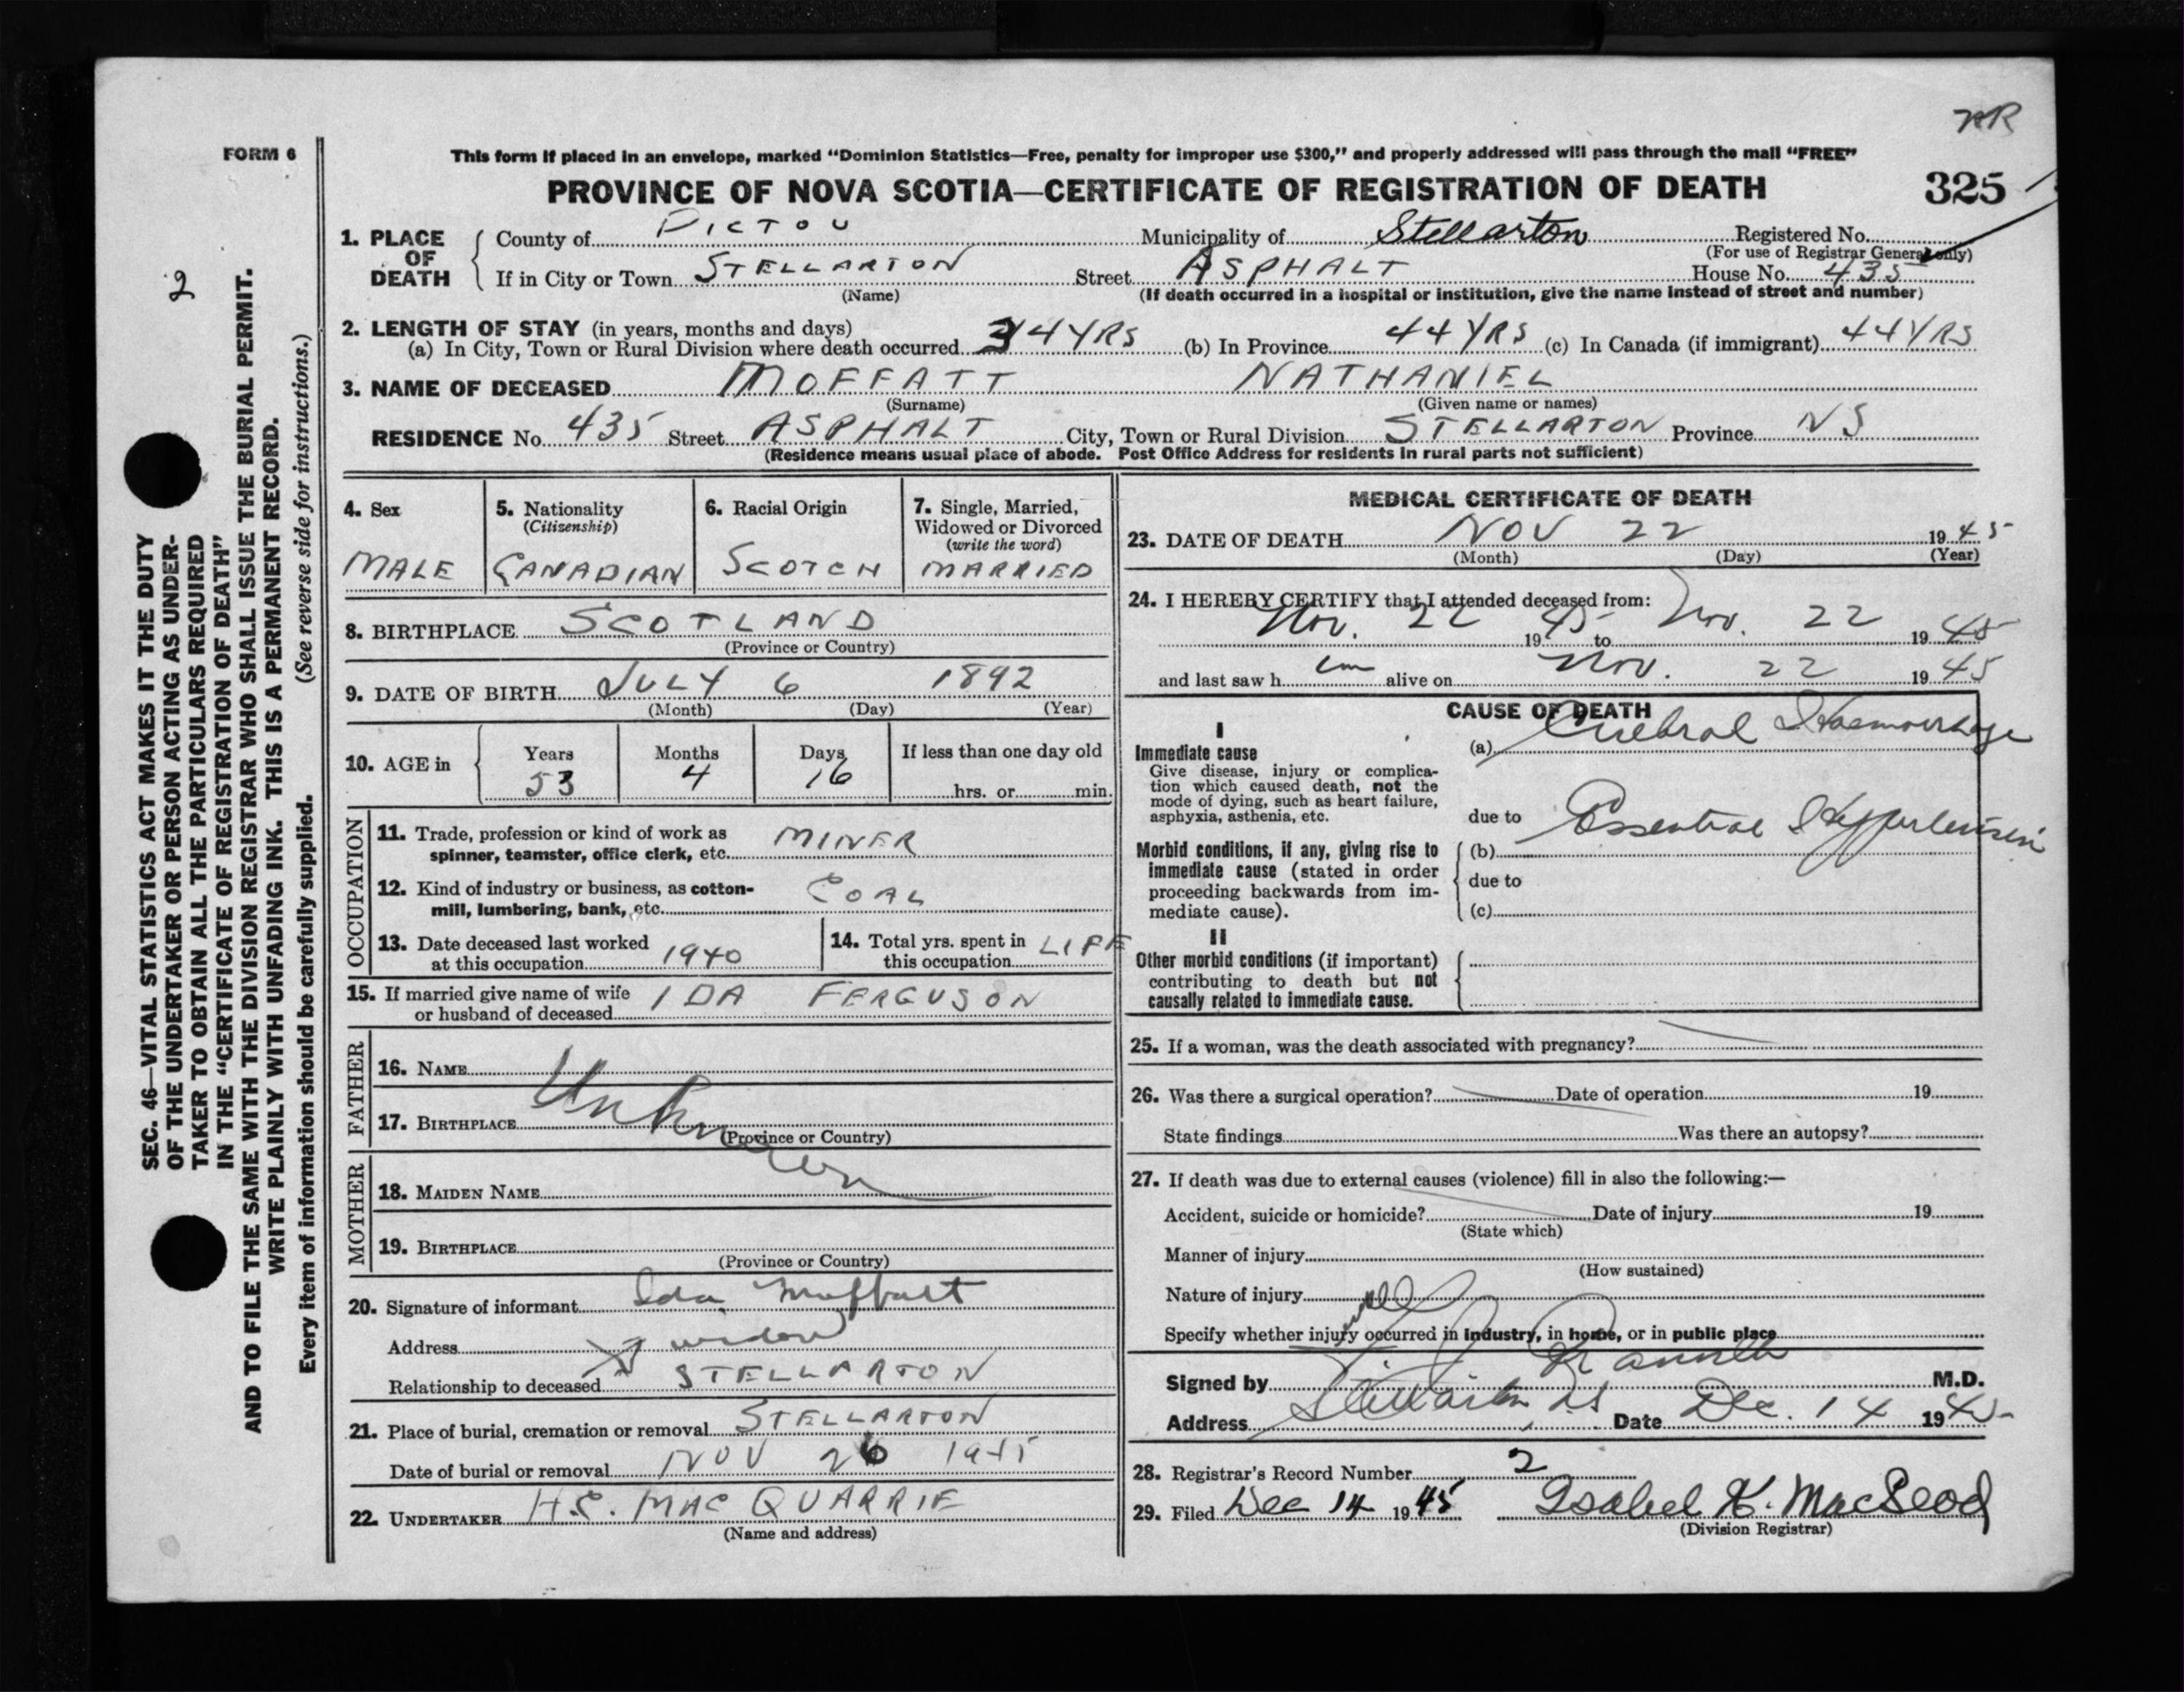 NR
FORM 6
This form if placed in an envelope, marked “Dominion Statistics—Free, penalty for improper use $300,” and properly addressed will pass through the mail “FREE”
PROVINCE OF NOVA SCOTIA—CERTIFICATE OF REGISTRATION OF DEATH 325
1. PLACE OF DEATH
County of PICTOU Municipality of Stellarton Registered No.
(For use of Registrar General only)
If in City or Town STELLARTON Street ASPHALT House No. 435
(Name) (If death occurred in a hospital or institution, give the name instead of street and number)
2. LENGTH OF STAY (in years, months and days)
(a) In City, Town or Rural Division where death occurred 34 YRS (b) In Province 44 YRS (c) In Canada (if immigrant) 44 YRS
3. NAME OF DECEASED MOFFATT NATHANIEL
(Surname) (Given name or names)
RESIDENCE No. 435 Street ASPHALT City, Town or Rural Division STELLARTON Province NS
(Residence means usual place of abode. Post Office Address for residents in rural parts not sufficient)
4. Sex
MALE
5. Nationality
(Citizenship)
CANADIAN
6. Racial Origin
SCOTCH
7. Single, Married,
Widowed or Divorced
(write the word)
MARRIED
8. BIRTHPLACE SCOTLAND
(Province or Country)
9. DATE OF BIRTH JULY 6 1892
(Month) (Day) (Year)
10. AGE in
Years Months Days If less than one day old
53 4 16 hrs. or min.
OCCUPATION
11. Trade, profession or kind of work as
spinner, teamster, office clerk, etc. MINER
12. Kind of industry or business, as cotton-
mill, lumbering, bank, etc. COAL
13. Date deceased last worked
at this occupation 1940
14. Total yrs. spent in
this occupation LIFE
15. If married give name of wife
or husband of deceased IDA FERGUSON
FATHER
16. NAME
Unknown
17. BIRTHPLACE
(Province or Country)
MOTHER
18. MAIDEN NAME
19. BIRTHPLACE
(Province or Country)
20. Signature of informant Ida Moffatt
Address widow
Relationship to deceased STELLARTON
21. Place of burial, cremation or removal STELLARTON
Date of burial or removal NOV 26 1945
22. UNDERTAKER H.S. MAC QUARRIE
(Name and address)
MEDICAL CERTIFICATE OF DEATH
23. DATE OF DEATH NOV 22 1945
(Month) (Day) (Year)
24. I HEREBY CERTIFY that I attended deceased from:
Nov. 22 1945 to Nov. 22 1945
and last saw h im alive on Nov. 22 1945
CAUSE OF DEATH
I
Immediate cause
Give disease, injury or complica-
tion which caused death, not the
mode of dying, such as heart failure,
asphyxia, asthenia, etc.
(a) Cerebral Haemorrhage
due to
Morbid conditions, if any, giving rise to
immediate cause (stated in order
proceeding backwards from im-
mediate cause).
(b) Essential Hypertension
due to
(c)
II
Other morbid conditions (if important)
contributing to death but not
causally related to immediate cause.
25. If a woman, was the death associated with pregnancy?
26. Was there a surgical operation? Date of operation 19
State findings Was there an autopsy?
27. If death was due to external causes (violence) fill in also the following:—
Accident, suicide or homicide? Date of injury 19
(State which)
Manner of injury
(How sustained)
Nature of injury
Specify whether injury occurred in industry, in home, or in public place
Signed by M.D.
Address Stellarton, NS Date Dec. 14 1945
28. Registrar's Record Number 2
29. Filed Dec 14 1945 Isabel K. MacLeod
(Division Registrar)
2
SEC. 46—VITAL STATISTICS ACT MAKES IT THE DUTY
OF THE UNDERTAKER OR PERSON ACTING AS UNDER-
TAKER TO OBTAIN ALL THE PARTICULARS REQUIRED
IN THE “CERTIFICATE OF REGISTRATION OF DEATH”
AND TO FILE THE SAME WITH THE DIVISION REGISTRAR WHO SHALL ISSUE THE BURIAL PERMIT.
WRITE PLAINLY WITH UNFADING INK. THIS IS A PERMANENT RECORD.
Every item of information should be carefully supplied. (See reverse side for instructions.)